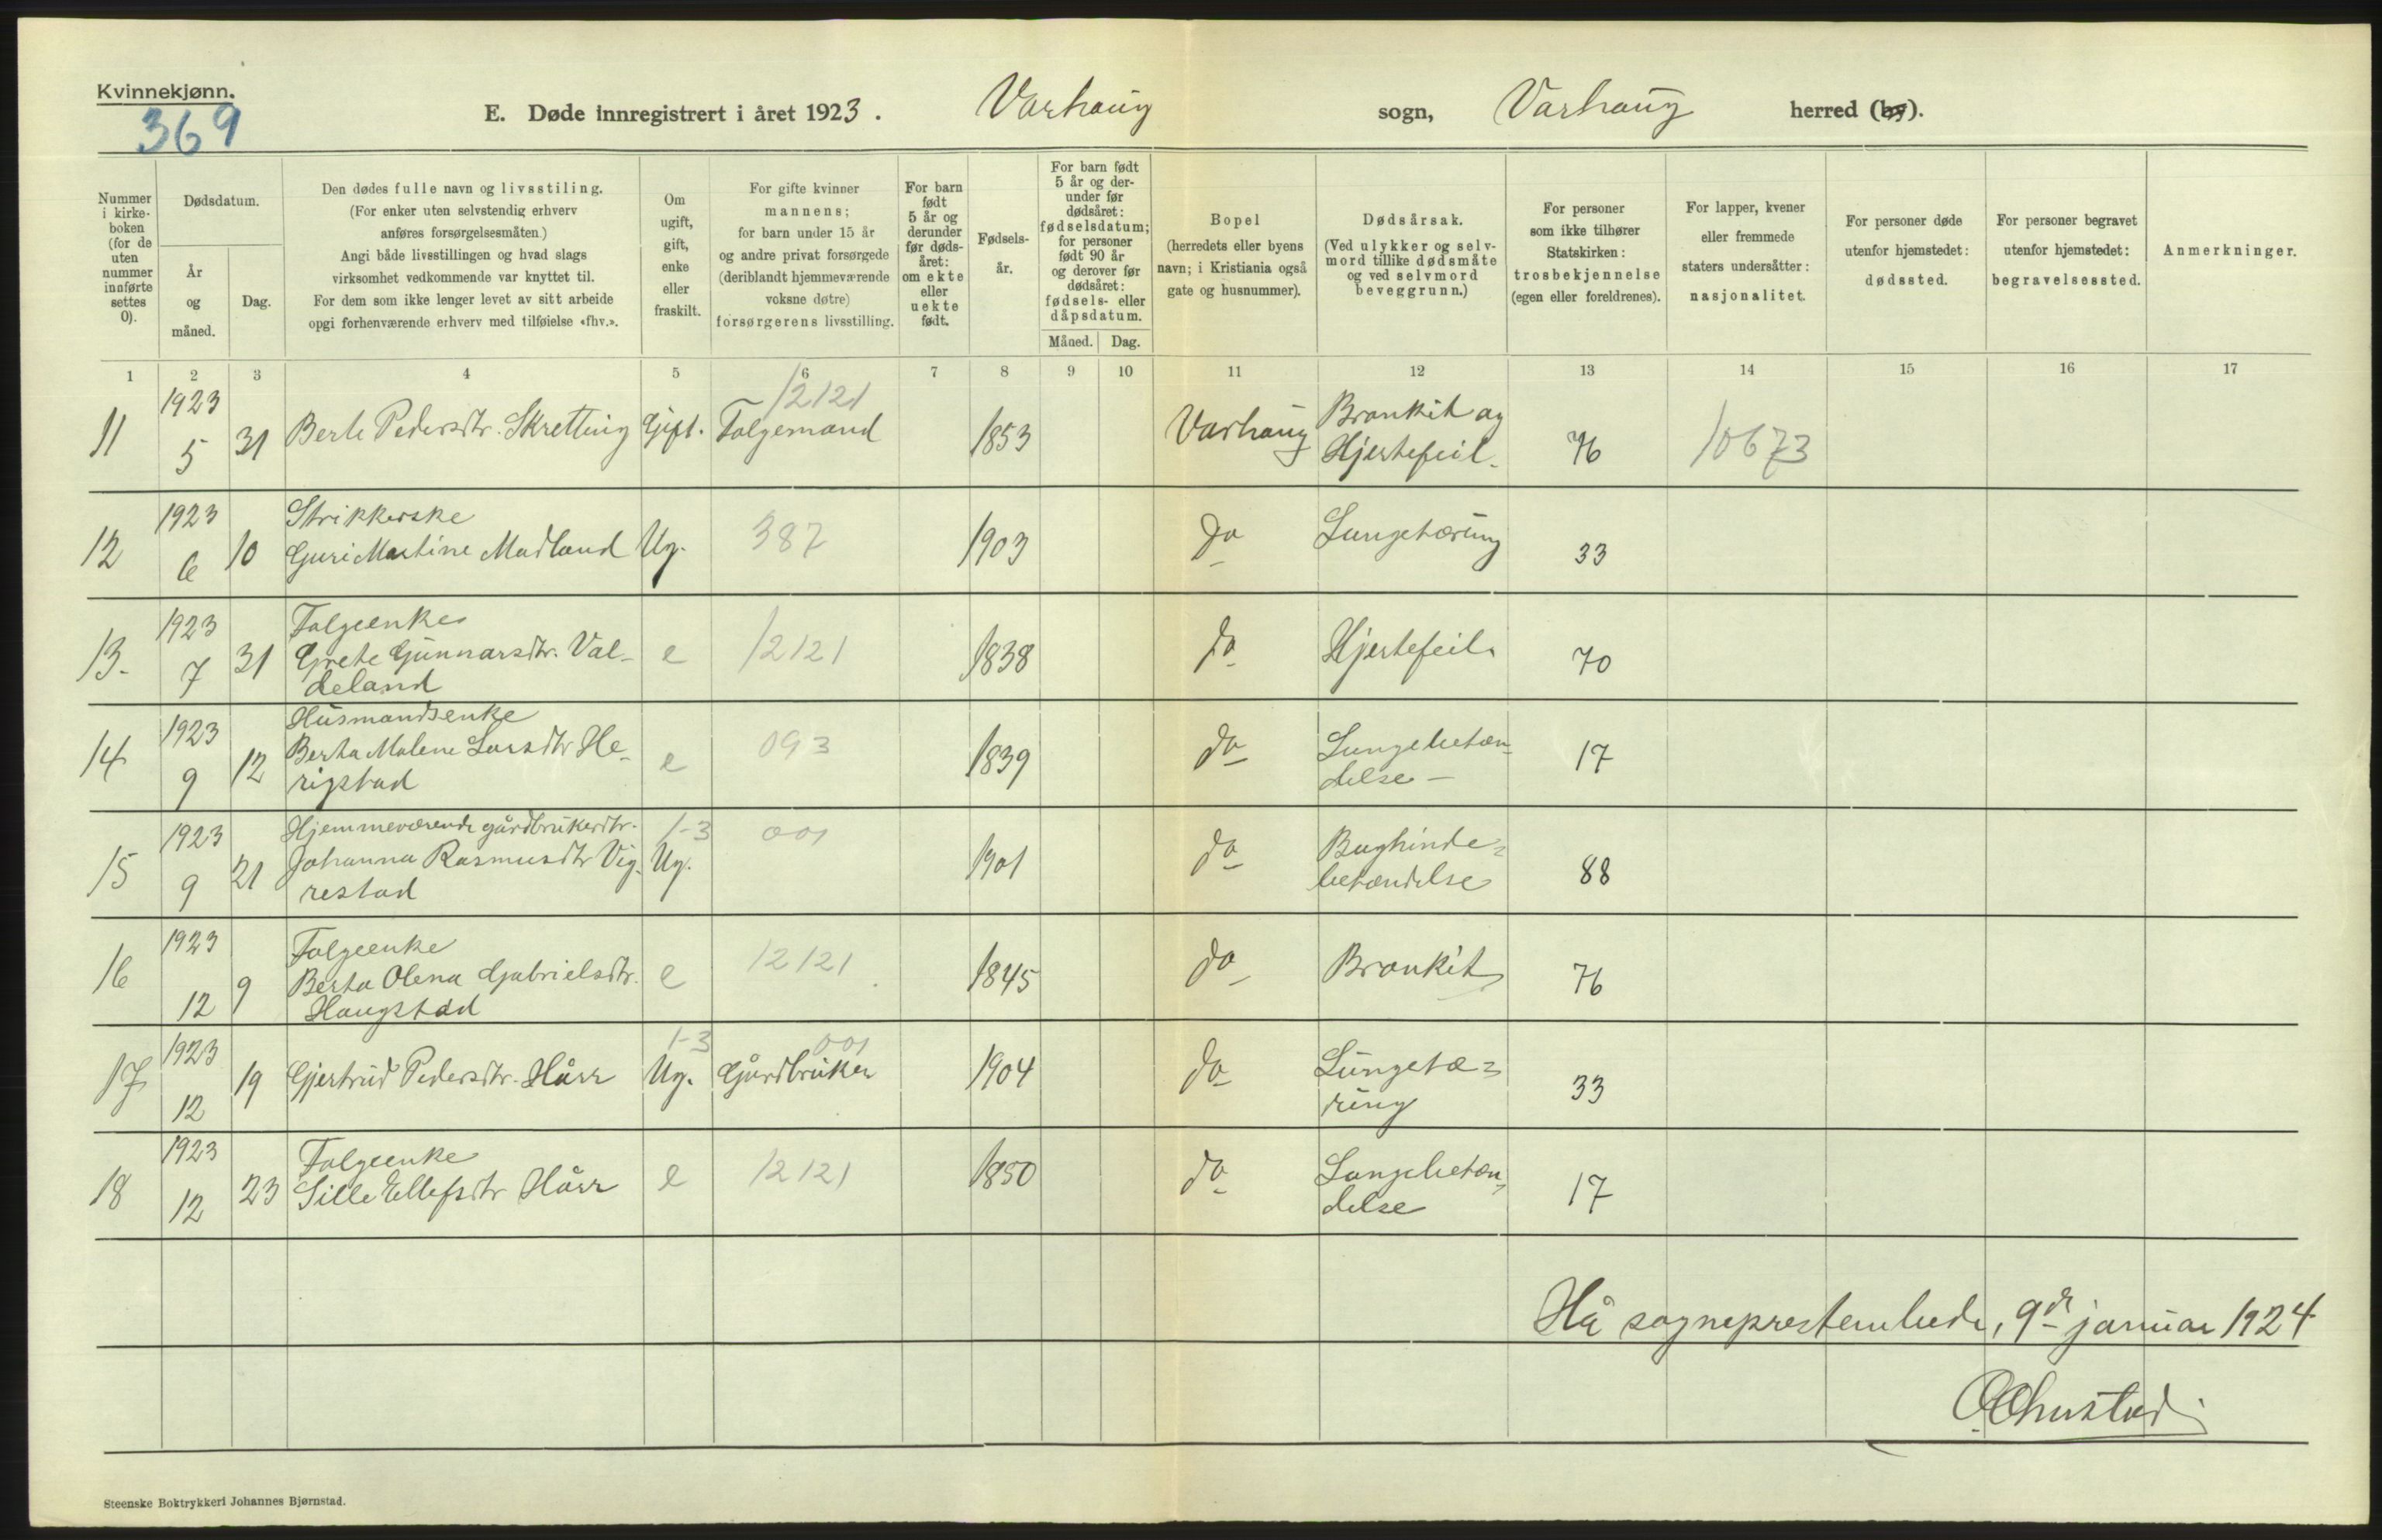 Kvinnekjønn.
369
E. Døde innregistrert i året 1923. Varhaug sogn, Varhaug herred (by).
Nummer i kirkeboken (for de uten nummer innførte settes 0).
Dødsdatum.
År og måned.
Dag.
Den dødes fulle navn og livsstiling.
(For enker uten selvstendig erhverv
anføres forsørgelsesmåten.)
Angi både livsstillingen og hvad slags
virksomhet vedkommende var knyttet til.
For dem som ikke lenger levet av sitt arbeide
opgi forhenværende erhverv med tilføielse «fhv.».
Om
ugift,
gift,
enke
eller
fraskilt.
For gifte kvinner
mannens;
for barn under 15 år
og andre privat forsørgede
(deriblandt hjemmeværende
voksne døtre)
forsørgerens livsstilling.
For barn
født
5 år og
derunder
før døds-
året:
om ekte
eller
uekte
født.
Fødsels-
år.
For barn født
5 år og der-
under før
dødsåret:
fødselsdatum;
for personer
født 90 år
og derover før
dødsåret:
fødsels- eller
dåpsdatum.
Måned. Dag.
Bopel
(herredets eller byens
navn; i Kristiania også
gate og husnummer).
Dødsårsak.
(Ved ulykker og selv-
mord tillike dødsmåte
og ved selvmord
beveggrunn.)
For personer
som ikke tilhører
Statskirken:
trosbekjennelse
(egen eller foreldrenes).
For lapper, kvener
eller fremmede
staters undersåtter:
nasjonalitet.
For personer døde
utenfor hjemstedet:
dødssted.
For personer begravet
utenfor hjemstedet:
begravelsessted.
Anmerkninger.
1 2 3 4 5 6 7 8 9 10 11 12 13 14 15 16 17
11 1923 5 31 Berte Pedersdtr. Skretting Gift. 12121 Folgemand 1853 Varhaug Bronkit og
Hjertefeil. 76 10673
12 1923 6 10 Strikkerske
Guri Martine Madland Ug. 387 1903 do Lungetæring 33
13. 1923 7 31 Folgeenke
Grete Gunnarsdtr. Val-
deland e 12121 1838 do Hjertefeil. 70
14 1923 9 12 Husmandsenke
Berta Malene Larsdtr He-
rigstad e 093 1839 do Lungebetæn-
delse - 17
15 1923 9 21 Hjemmeværende gårdbrukerdtr.
Johanna Rasmusdtr Vig-
restad 1-3 Ug. 001 1901 do Bughinde-
betændelse 88
16 1923 12 9 Folgeenke
Berta Olena Gabrielsdtr.
Haugstad e 12121 1845 do Bronkit 76
17 1923 12 19 Gjertrud Pedersdtr. Hårr 1-3 Ug. 001 Gårdbruker 1904 do Lungetæ-
ring 33
18 1923 12 23 Folgeenke
Sille Ellefsdtr Hårr e 12121 1850 do Lungebetæn-
delse 17
Hå sogneprestembede, 9de januar 1924
Steenske Boktrykkeri Johannes Bjørnstad.